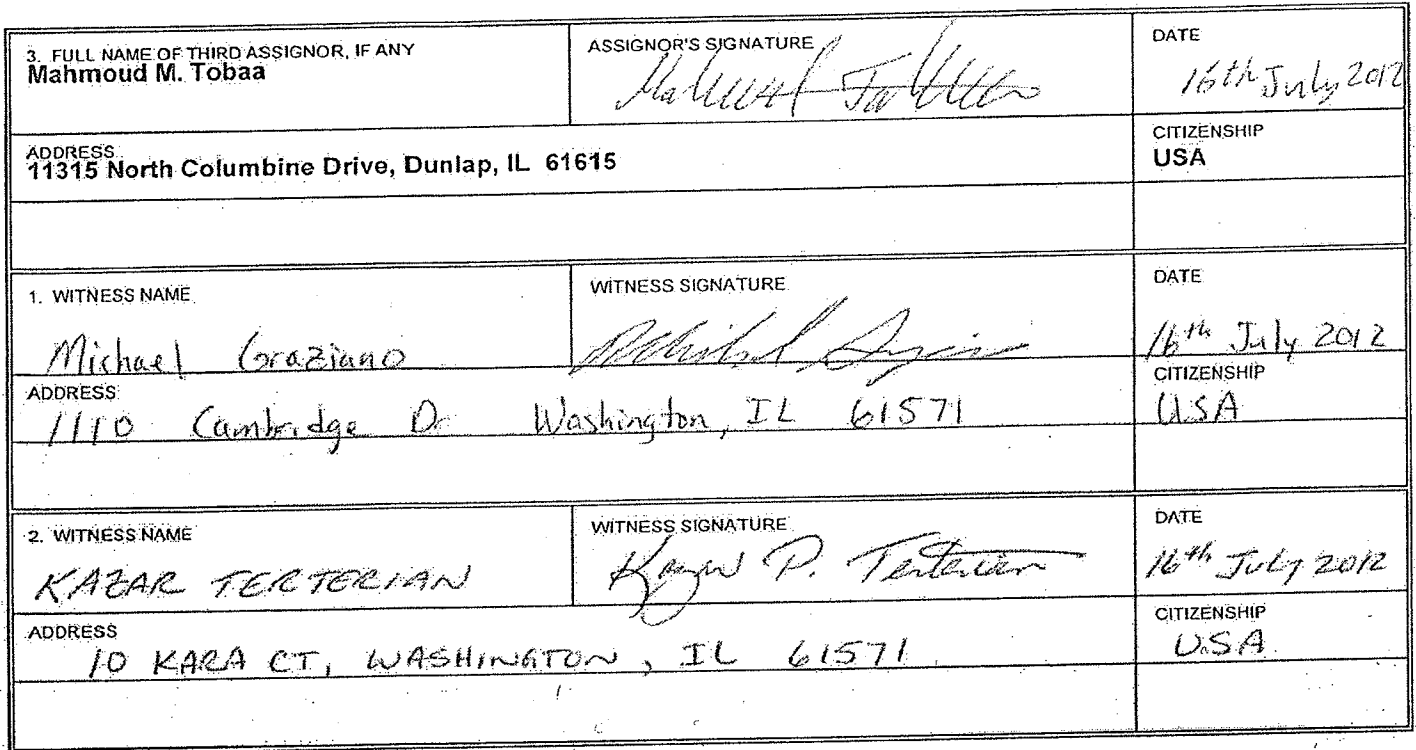 3. FULL NAME OF THIRD ASSIGNOR, IF ANY
Mahmoud M. Tobaa
ASSIGNOR'S SIGNATURE
DATE
16th July 2012
ADDRESS
11315 North Columbine Drive, Dunlap, IL 61615
CITIZENSHIP
USA
1. WITNESS NAME
Michael Graziano
WITNESS SIGNATURE
DATE
16th July 2012
ADDRESS
1110 Cambridge Dr Washington, IL 61571
CITIZENSHIP
USA
2. WITNESS NAME
KAZAR TERTERIAN
WITNESS SIGNATURE
Kazar P. Terterian
DATE
16th July 2012
ADDRESS
10 KARA CT, WASHINGTON, IL 61571
CITIZENSHIP
USA